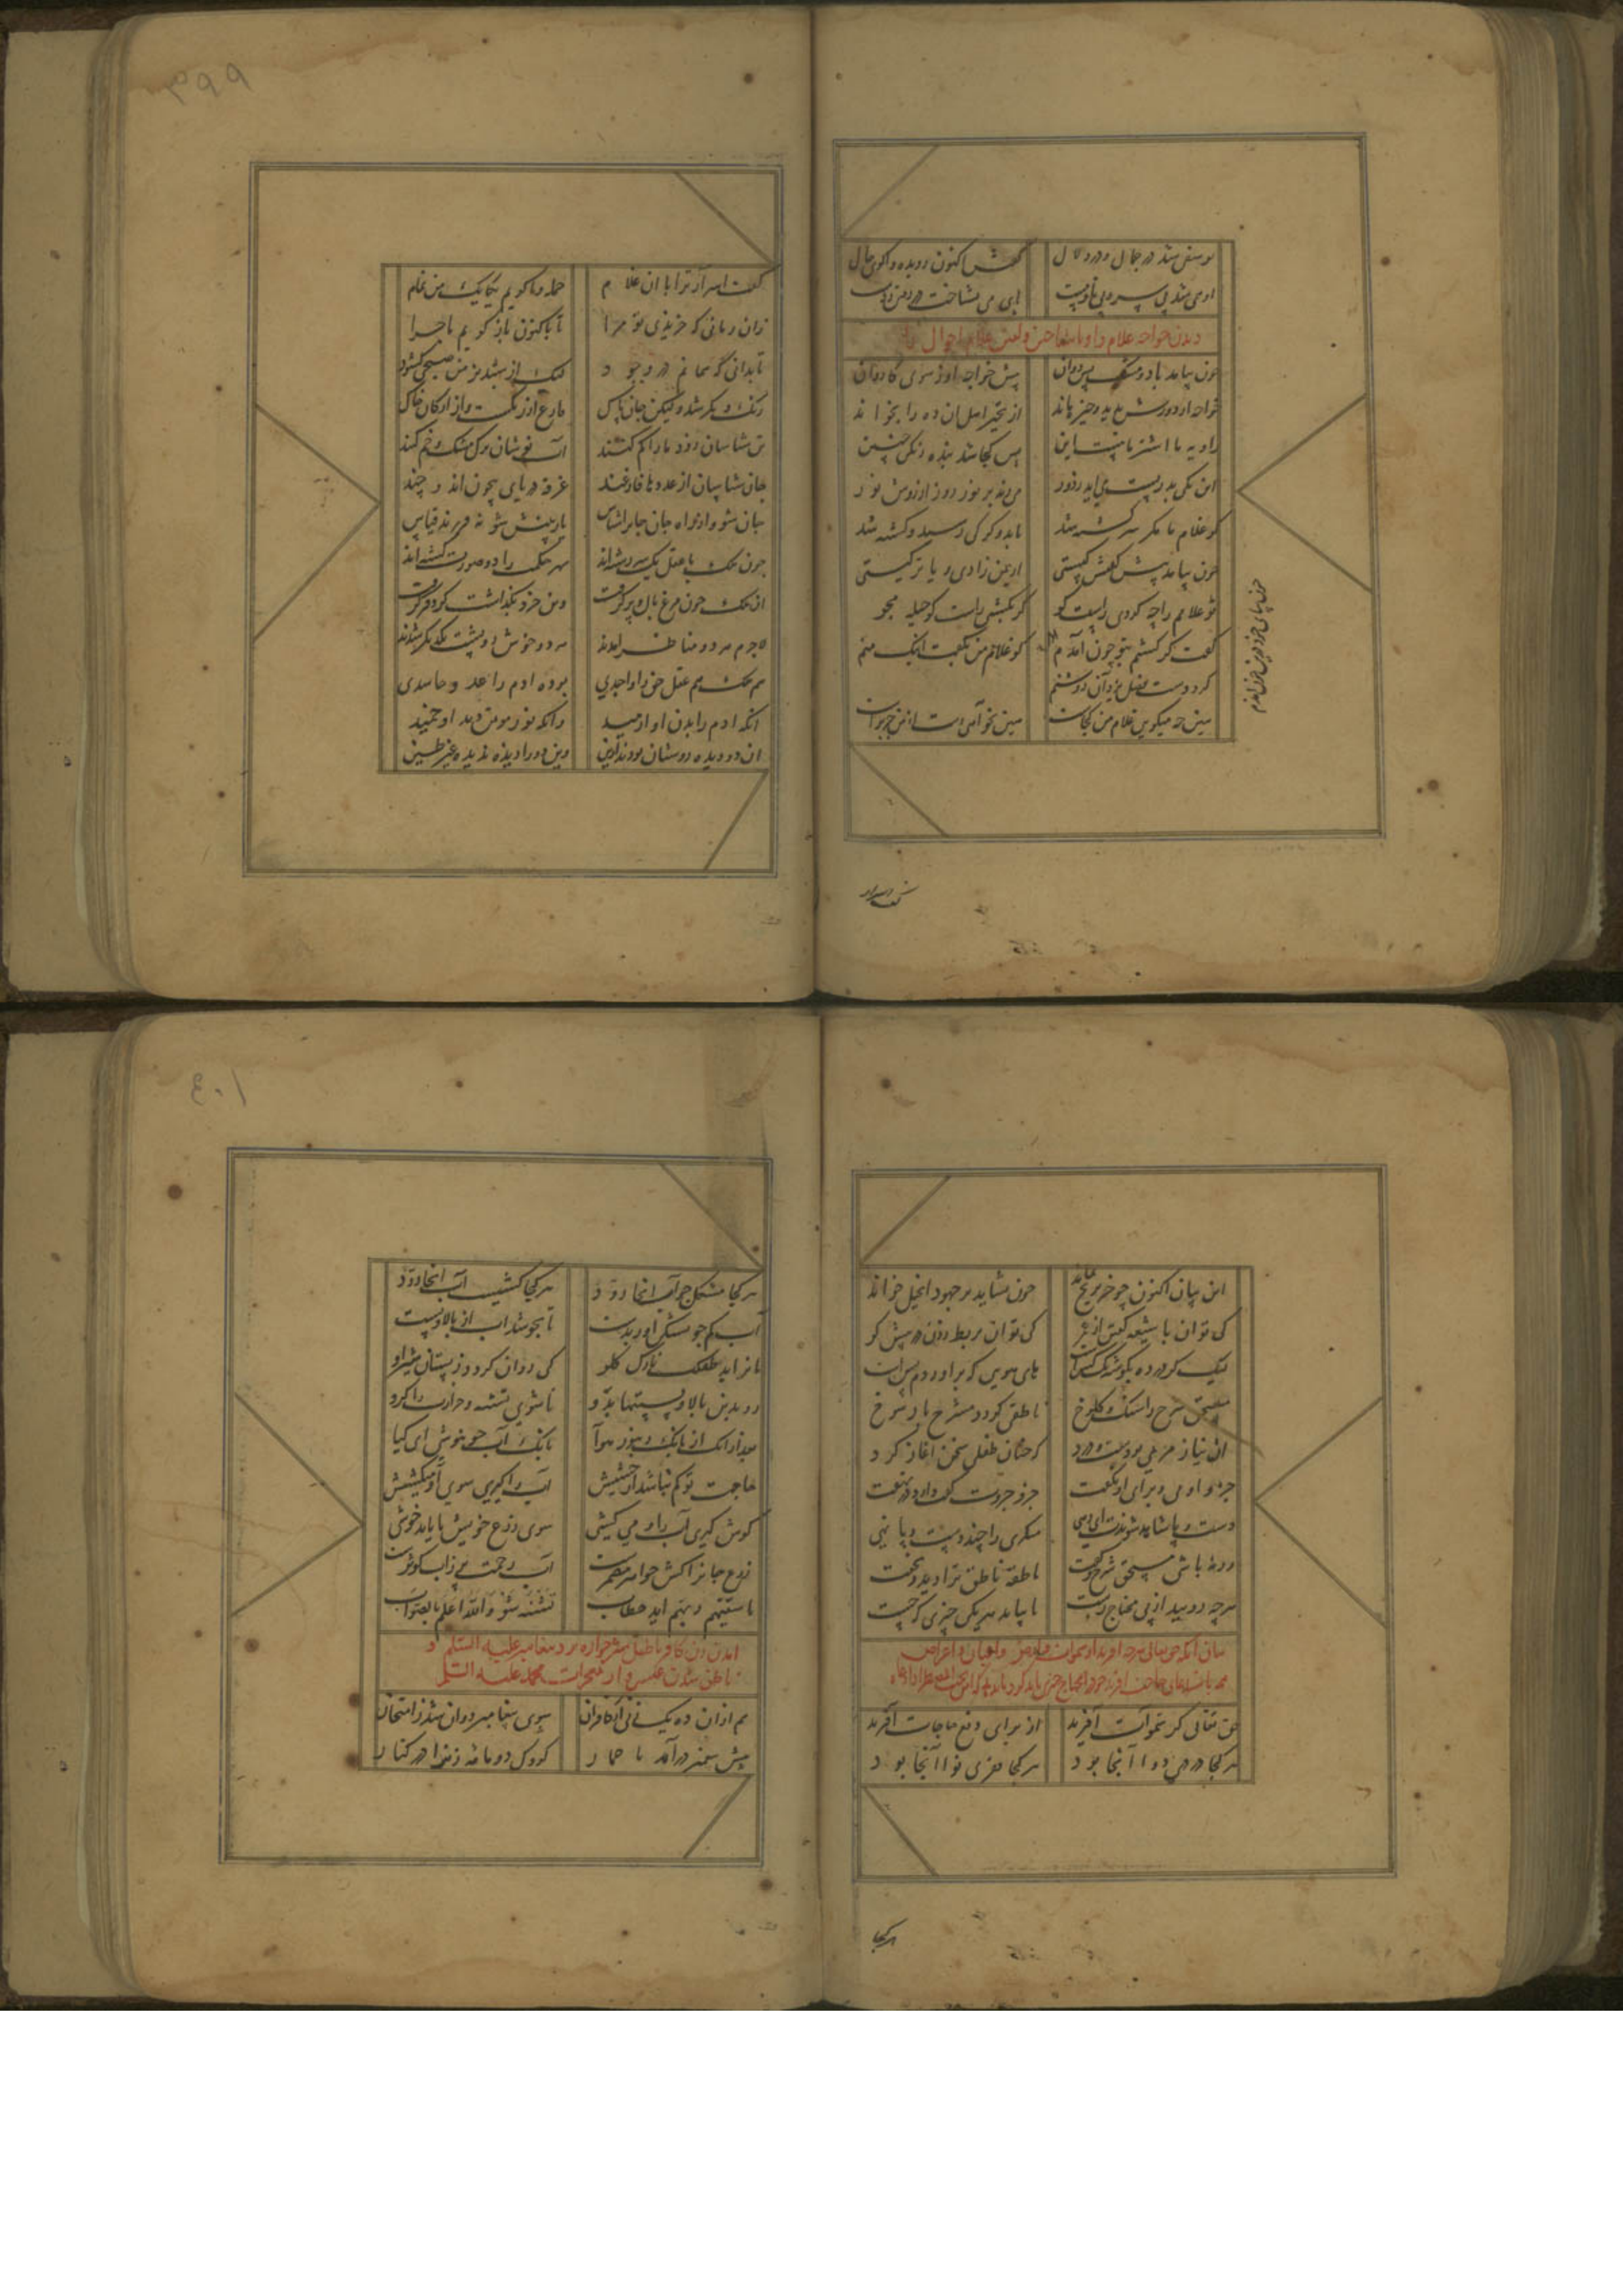 یوسفی شد در جمال و در دلال گفتش اکنون رو بده واگوی حال
او می شد بی سر و بی پا و مست پای می نشناخت در رفتن ز دست
دیدن خواجه غلام را و ناشناختن و گفتن غلام احوال را
چون بیامد با دو مشک پس روان پیش خواجه او ز سوی کاروان
خواجه از دورش بدید و خیره ماند از تحیر اهل آن ده را بخواند
راویه ما اشتر ما هست این پس کجا شد بنده زنگی جبین
این یکی بدریست می آید ز دور می زند بر نور روز از روش نور
کو غلام ما مگر سرگشته شد یا بدو گرگی رسید و کشته شد
چون بیامد پیش گفتش کیستی از یمن زادی و یا ترکیستی
تو غلامم را چه کردی راست گو گر بکشتی راست گو حیله مجو
گفت گر کشتم بتو چون آمدم
کو غلام من بگفت اینک منم
کرد دست فضل یزدان روشنم
هین چه میگویی غلام من کجاست هین نخواهی رست از من جز براست
چون بپای خود درین خون آمدم
گفت اسرار ترا با آن غلام جمله وا گویم یکایک من تمام
زان زمانی که خریدی تو مرا تا باکنون باز گویم ماجرا
تا بدانی که همانم در وجود گرچه از شبدیز من صبحی گشود
رنگ دیگر شد ولیکن جان پاک فارغ از رنگست و از ارکان خاک
تن شناسان زود ما را گم کنند آب نوشان ترک مشک و خم کنند
جان شناسان از عددها فارغند غرقه دریای بیچون اند و چند
جان شو و از راه جان جان را شناس یار بینش شو نه فرزند قیاس
چون ملک با عقل یک سررشته اند بهر حکمت را دو صورت گشته اند
آن ملک چون مرغ بال و پر گرفت وین خرد بگذاشت پر و فر گرفت
لاجرم هر دو مناظر آمدند هر دو خوش رو پشت یکدیگر شدند
هم ملک هم عقل حق را واجدی هر دو آدم را معین و ساجدی
آنکه آدم را بدن دید او رمید وانکه نور موتمن دید او خمید
آن دو دیده روشنان بودند ازین وین دو را دیده ندیده غیر طین
این بیان اکنون چو خر بر یخ بماند چون نشاید بر جهود انجیل خواند
کی توان با شیعه گفتن از عمر کی توان بربط زدن در پیش کر
لیک گر در ده بگوشه یک کس است های هویی که بر آوردم بس است
مستحق شرح را سنگ و کلوخ ناطقی گردد مشرح با رسوخ
آن نیاز مریمی بودست و درد که چنان طفلی سخن آغاز کرد
جزو او بی او برای او بگفت جزو جزوت گفت دارد در نهفت
دست و پا شاهد شوندت ای رهی منکری را چند دست و پا نهی
ور نه باشی مستحق شرح و گفت ناطقه ناطق ترا دید و بخفت
هرچه روید از پی محتاج رست تا بیابد هر یکی چیزی که جست
حق تعالی گر سموات آفرید از برای دفع حاجات آفرید
هر کجا دردی دوا آنجا بود هر کجا فقری نوا آنجا بود
هرکجا
هر کجا مشکل جواب آنجا رود هر کجا کشتیست آب آنجا رود
آب کم جو تشنگی آور بدست تا بجوشد آب از بالا و پست
تا نزاید طفلک نازک گلو کی روان گردد ز پستان شیر او
رو بدین بالا و پستیها بدو تا شوی تشنه و حرارت را گرو
بعد ازان از بانگ زنبور هوا بانگ آب جو بنوشی ای کیا
حاجت تو کم نباشد از حشیش آب را گیری سوی او میکشیش
گوش گیری آب را و می کشی سوی زرع خویش تا یابد خوشی
زرع جان را کش جواهر مضمرست ابر رحمت پر ز آب کوثرست
تا سقیهم ربهم آید خطاب تشنه شو والله اعلم بالصواب
آمدن زن کافر با طفل شیرخواره نزد پیغامبر علیه السلم و
ناطق شدن عیسی وار معجزات محمد علیه السلم
هم ازان ده یک زنی از کافران سوی پیغامبر دوان شد ز امتحان
پیش پیغمبر در آمد با خمار کودکی دو ماهه زن را در کنار